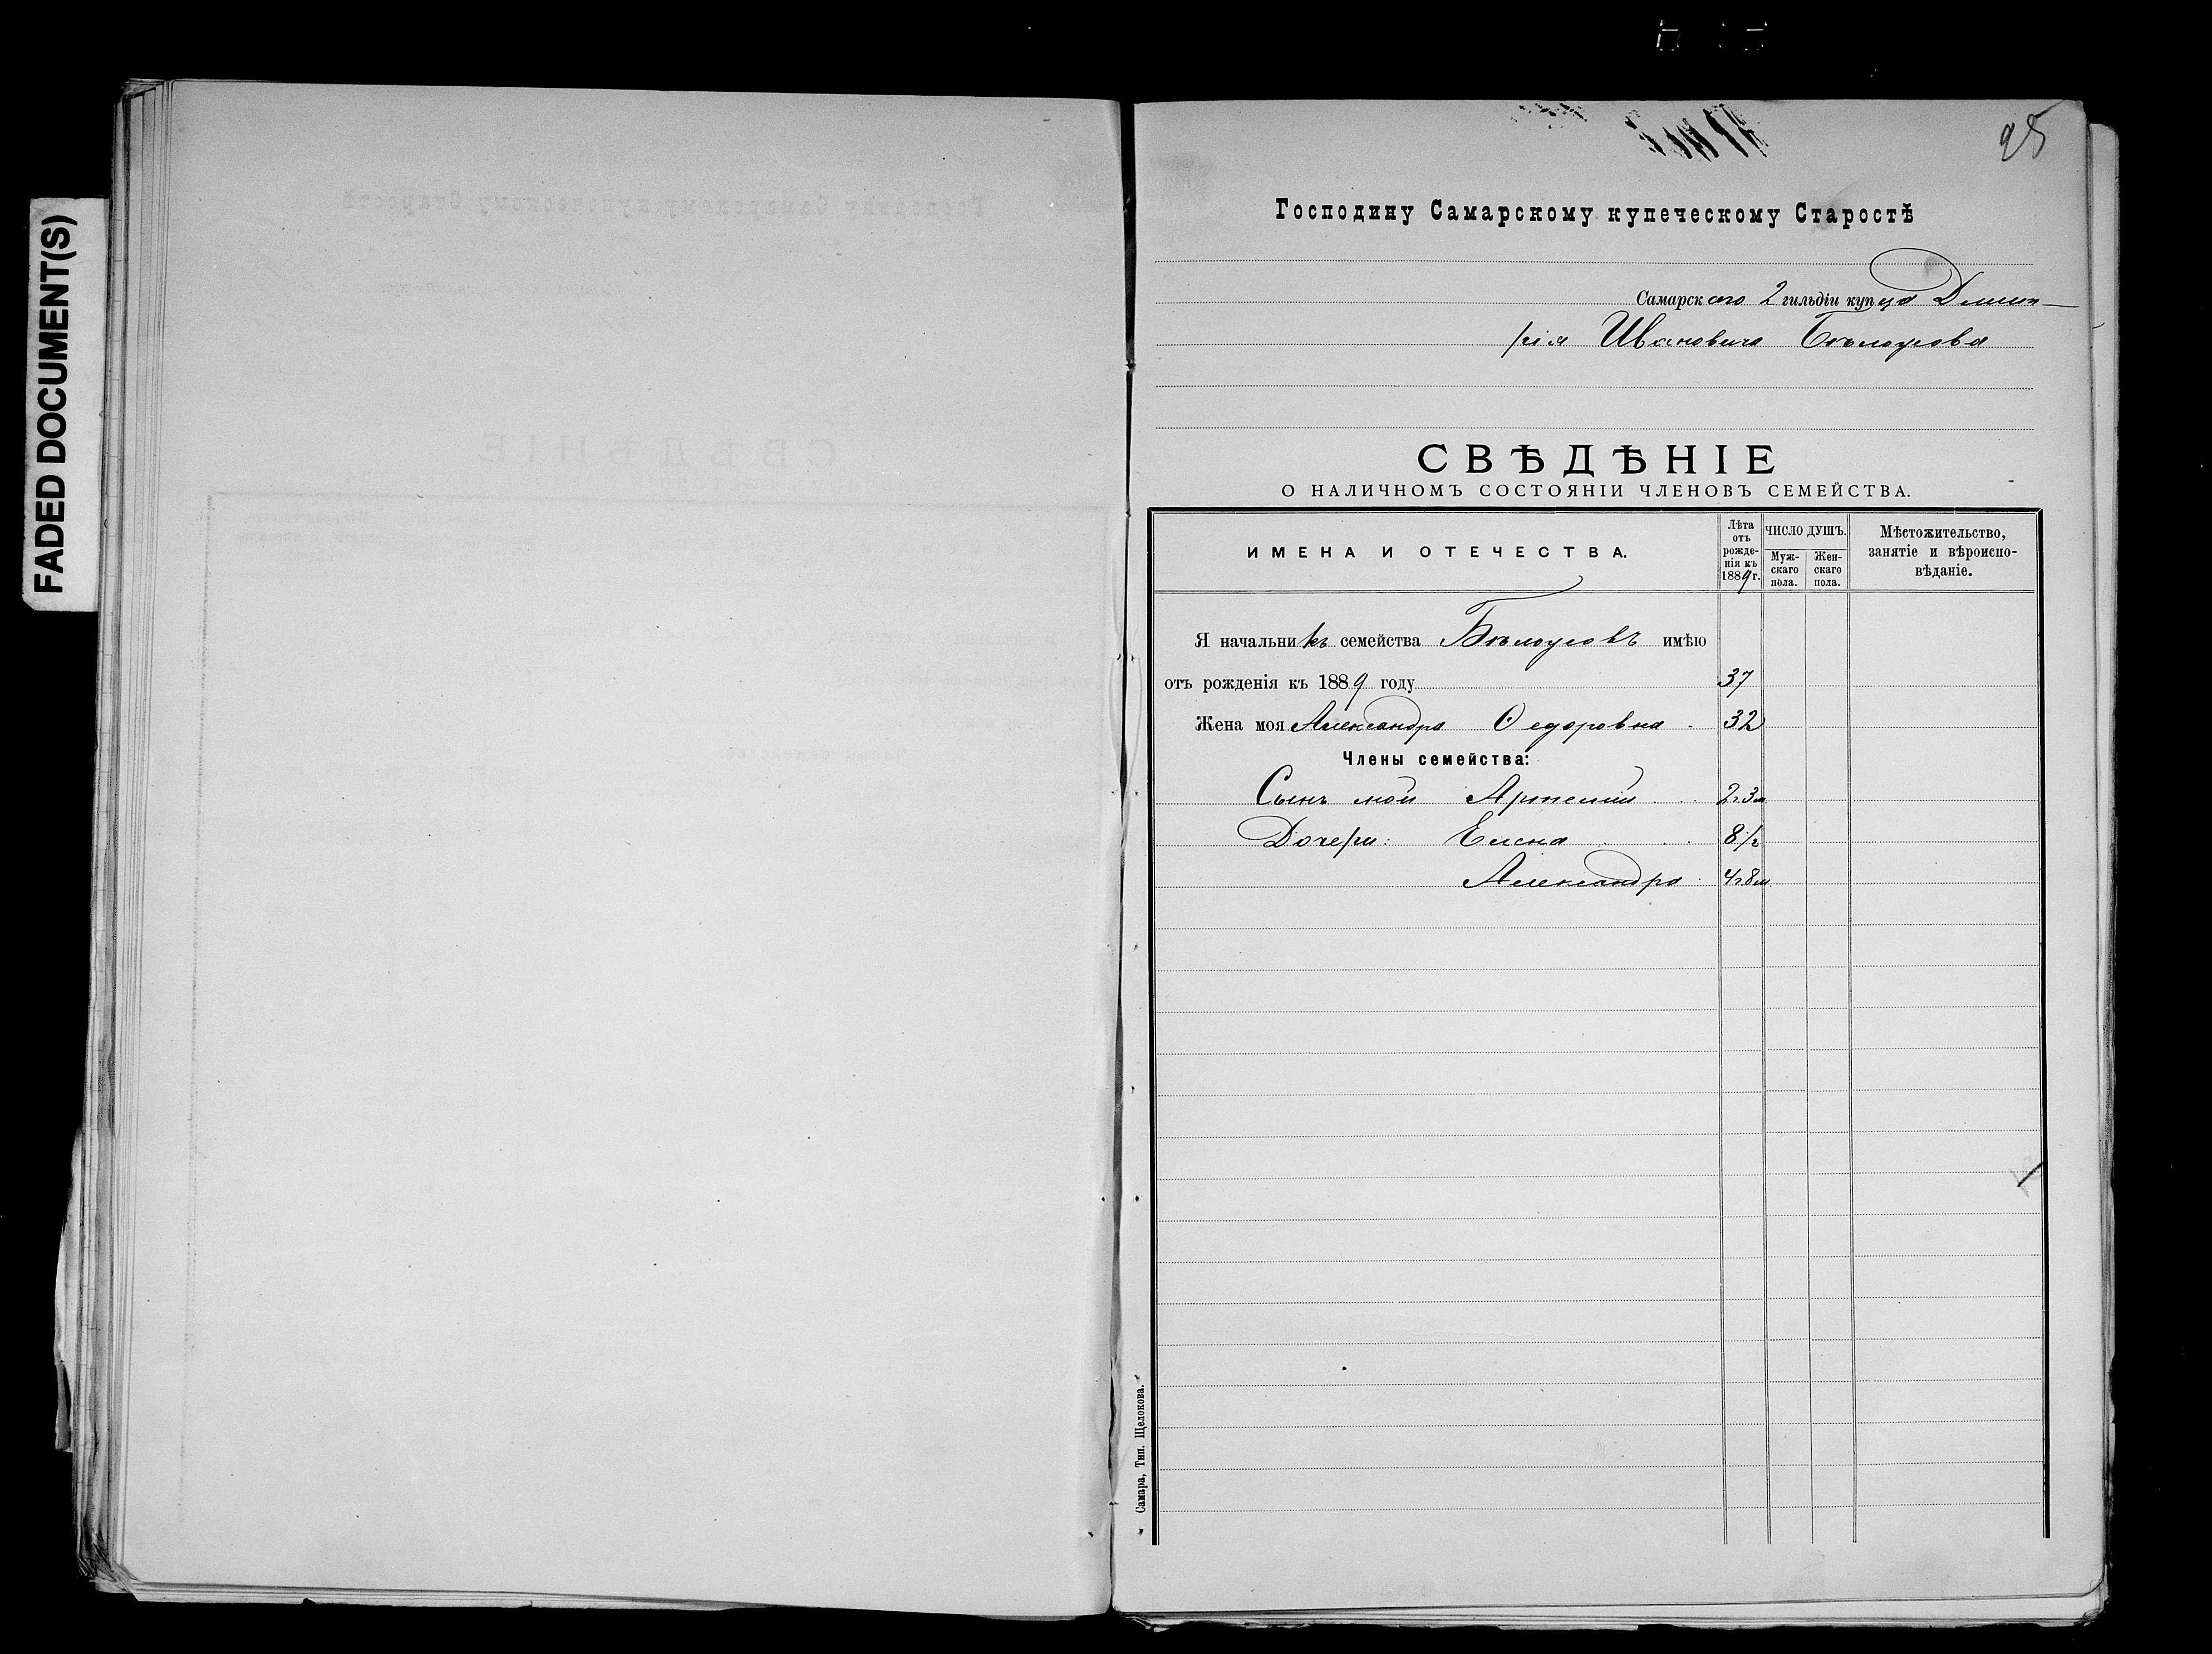 FADED DOCUMENT(S)
95
Господину Самарскому купеческому Старостѣ
Самарскаго 2 гильдіи купца Димит-
рія Ивановича Бѣлоусова
СВѢДѢНІЕ
О НАЛИЧНОМЪ СОСТОЯНІИ ЧЛЕНОВЪ СЕМЕЙСТВА.
ИМЕНА И ОТЕЧЕСТВА.
Лѣта
отъ
рожде-
нія къ
1889 г.
ЧИСЛО ДУШЪ.
Муж-
скаго
пола.
Жен-
скаго
пола.
Мѣстожительство,
занятіе и вѣроиспо-
вѣданіе.
Я начальникъ семейства Бѣлоусовъ имѣю
отъ рожденія къ 1889 году 37
Жена моя Александра Ѳедоровна 32
Члены семейства:
Сынъ мой Артемій 2г3м
Дочери: Елена 8 1/2
Александра 4г8м
Самара, Тип. Щелокова.